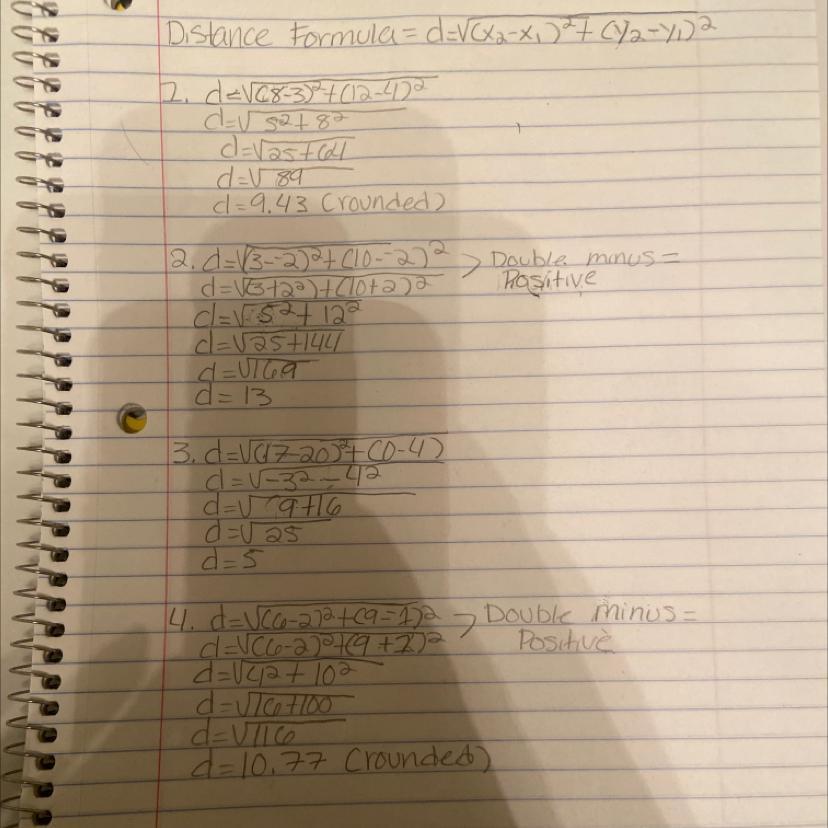 Distance Formula = d=√(x₂-x₁)²+(y₂-y₁)²
1. d=√(8-3)²+(12-4)²
d=√5²+8²
d=√25+64
d=√89
d=9.43 (rounded)
2. d=√(3--2)²+(10--2)² > Double minus =
Positive
d=√(3+2²)+(10+2)²
d=√5²+12²
d=√25+144
d=√169
d=13
3. d=√(17-20)²+(0-4)
d=√-3²-4²
d=√9+16
d=√25
d=5
4. d=√(6-2)²+(9--1)² > Double minus =
Positive
d=√(6-2)²+(9+1)²
d=√4²+10²
d=√16+100
d=√116
d=10.77 (rounded)